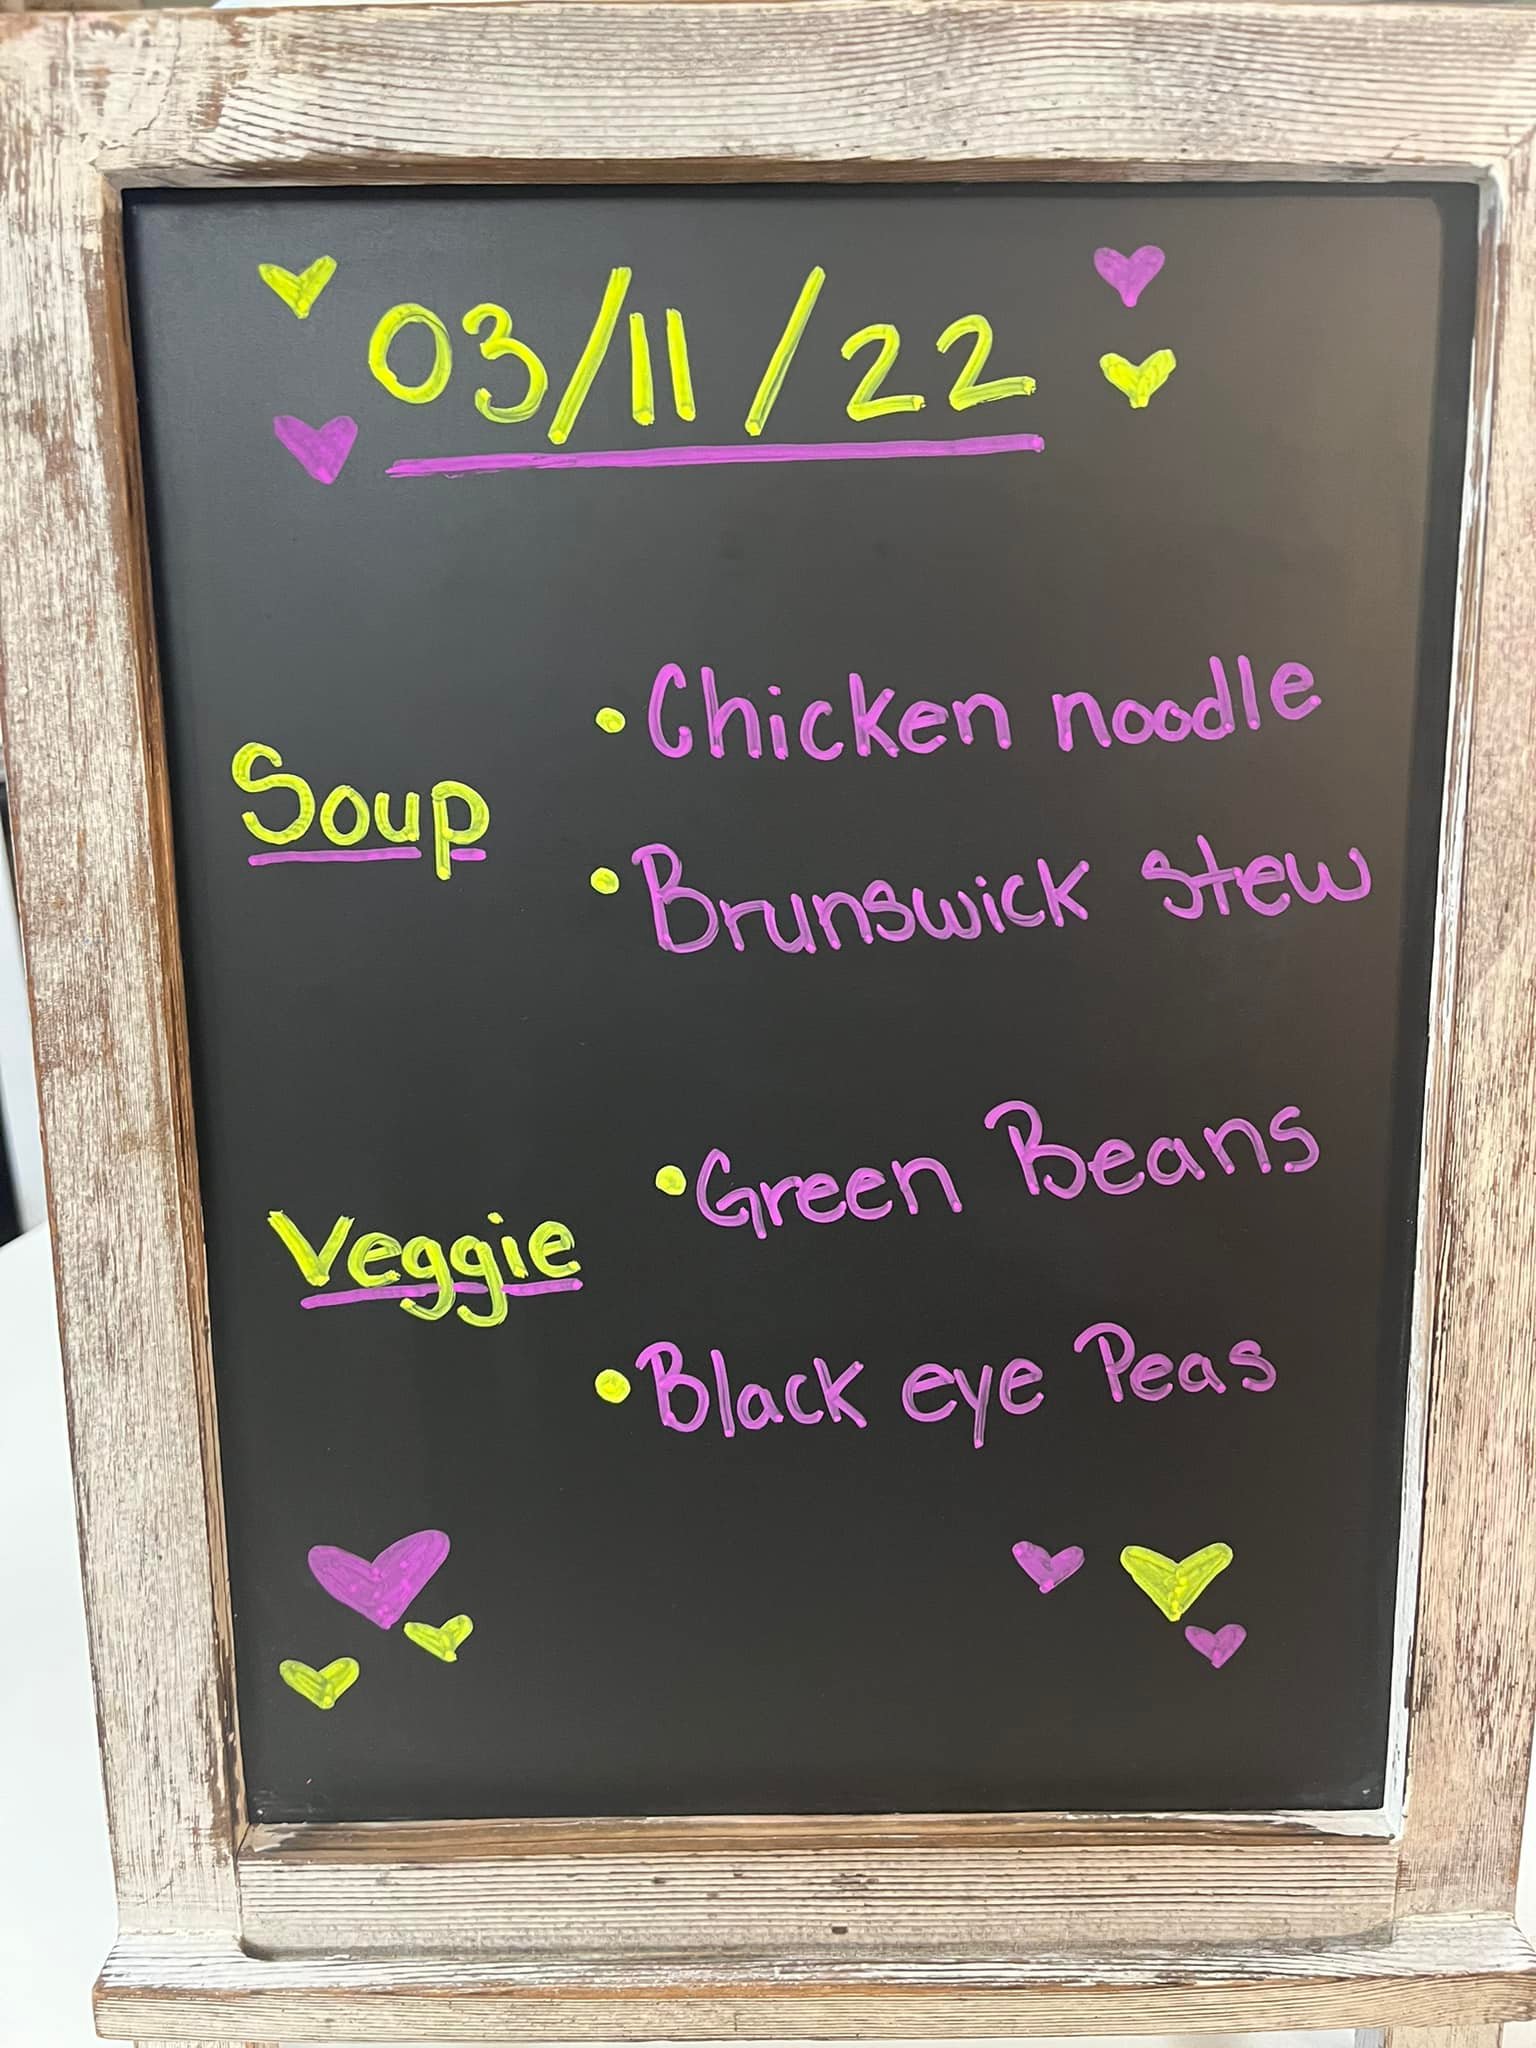 03/11/22
Soup
• Chicken noodle
• Brunswick stew
Veggie
• Green Beans
• Black eye Peas